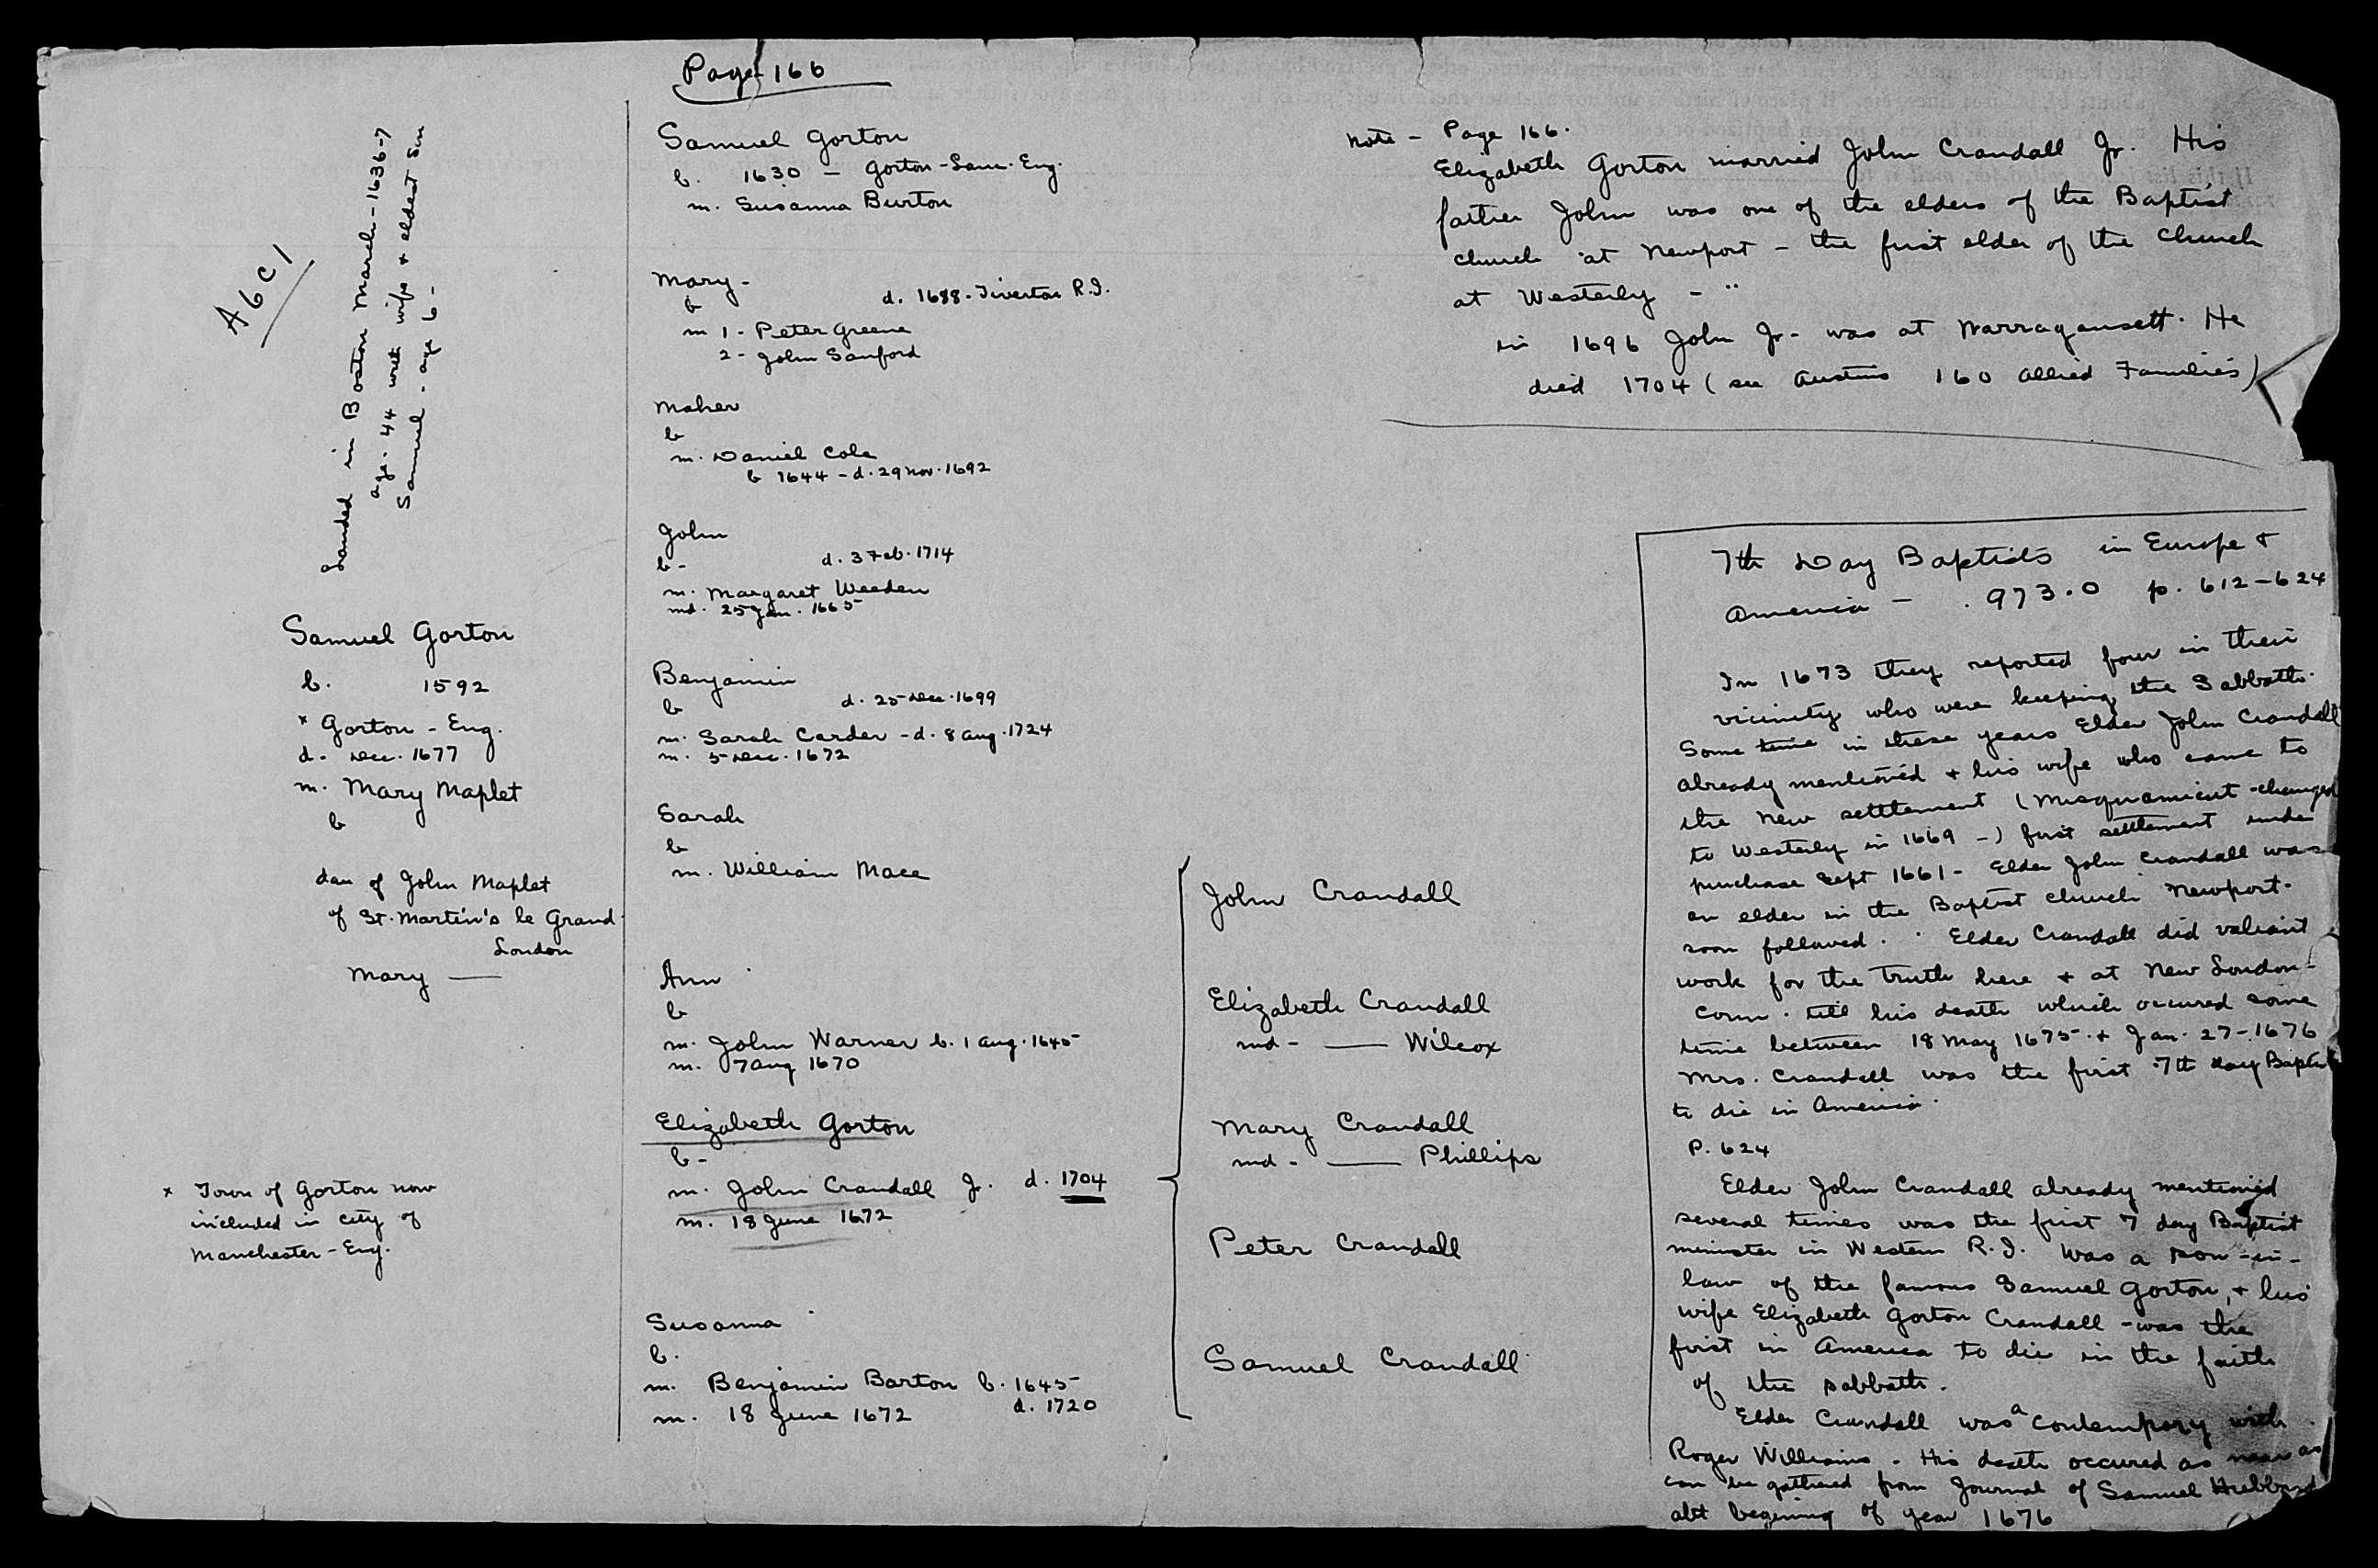 Page 166
A6C1
Landed in Boston March - 1636-7
age. 44 with wife & eldest son
Samuel - age 6 -
Samuel Gorton
b. 1592
x Gorton - Eng.
d. Dec. 1677
m. Mary Maplet
b
dau of John Maplet
of St. Martin's le Grand
London
Mary —
x Town of Gorton now
included in city of
Manchester - Eng.
Samuel Gorton
b. 1630 - Gorton - Lanc. Eng.
m. Susanna Burton
Mary -
b d. 1688 - Tiverton R.I.
m 1 - Peter Greene
2 - John Sanford
Maher
b
m. Daniel Cole
b 1644 - d. 29 Nov. 1692
John
b - d. 3 Feb. 1714
m. Margaret Weeden
md. 25 Jan. 1665
Benjamin
b d. 25 Dec. 1699
m. Sarah Carder - d. 8 Aug. 1724
m. 5 Dec. 1672
Sarah
b
m. William Mace
Ann
b
m. John Warner b. 1 Aug. 1645
m. 7 Aug 1670
Elizabeth Gorton
b -
m. John Crandall Jr. d. 1704
m. 18 June 1672
Susanna
b.
m. Benjamin Barton b. 1645
m. 18 June 1672 d. 1720
John Crandall
Elizabeth Crandall
md - — Wilcox
Mary Crandall
md - — Phillips
Peter Crandall
Samuel Crandall
Note - Page 166.
Elizabeth Gorton married John Crandall Jr. His
father John was one of the elders of the Baptist
church at Newport - the first elder of the church
at Westerly - "
in 1696 John Jr - was at Narragansett. He
died 1704 (see Austins 160 Allied Families)
7th Day Baptists in Europe &
America - . 973.0 p. 612-624
In 1673 they reported four in their
vicinity who were keeping the Sabbath.
Some time in these years Elder John Crandall
already mentioned & his wife who came to
the new settlement (Misquamicut - changed
to Westerly in 1669 -) first settlement under
purchase Sept 1661 - Elder John Crandall was
an elder in the Baptist church Newport.
soon followed. Elder Crandall did valiant
work for the truth here & at New London -
Conn. till his death which occured some
time between 18 May 1675 - & Jan. 27 - 1676
Mrs. Crandall was the first 7th day Baptist
to die in America.
P. 624
Elder John Crandall already mentioned
several times was the first 7 day Baptist
minister in Western R.I. Was a son-in-
law of the famous Samuel Gorton, & his
wife Elizabeth Gorton Crandall - was the
first in America to die in the faith
of the sabbath.
Elder Crandall was a contempory with
Roger Williams. His death occured as near as
can be gathered from Journal of Samuel Hubbard
abt begining of year 1676